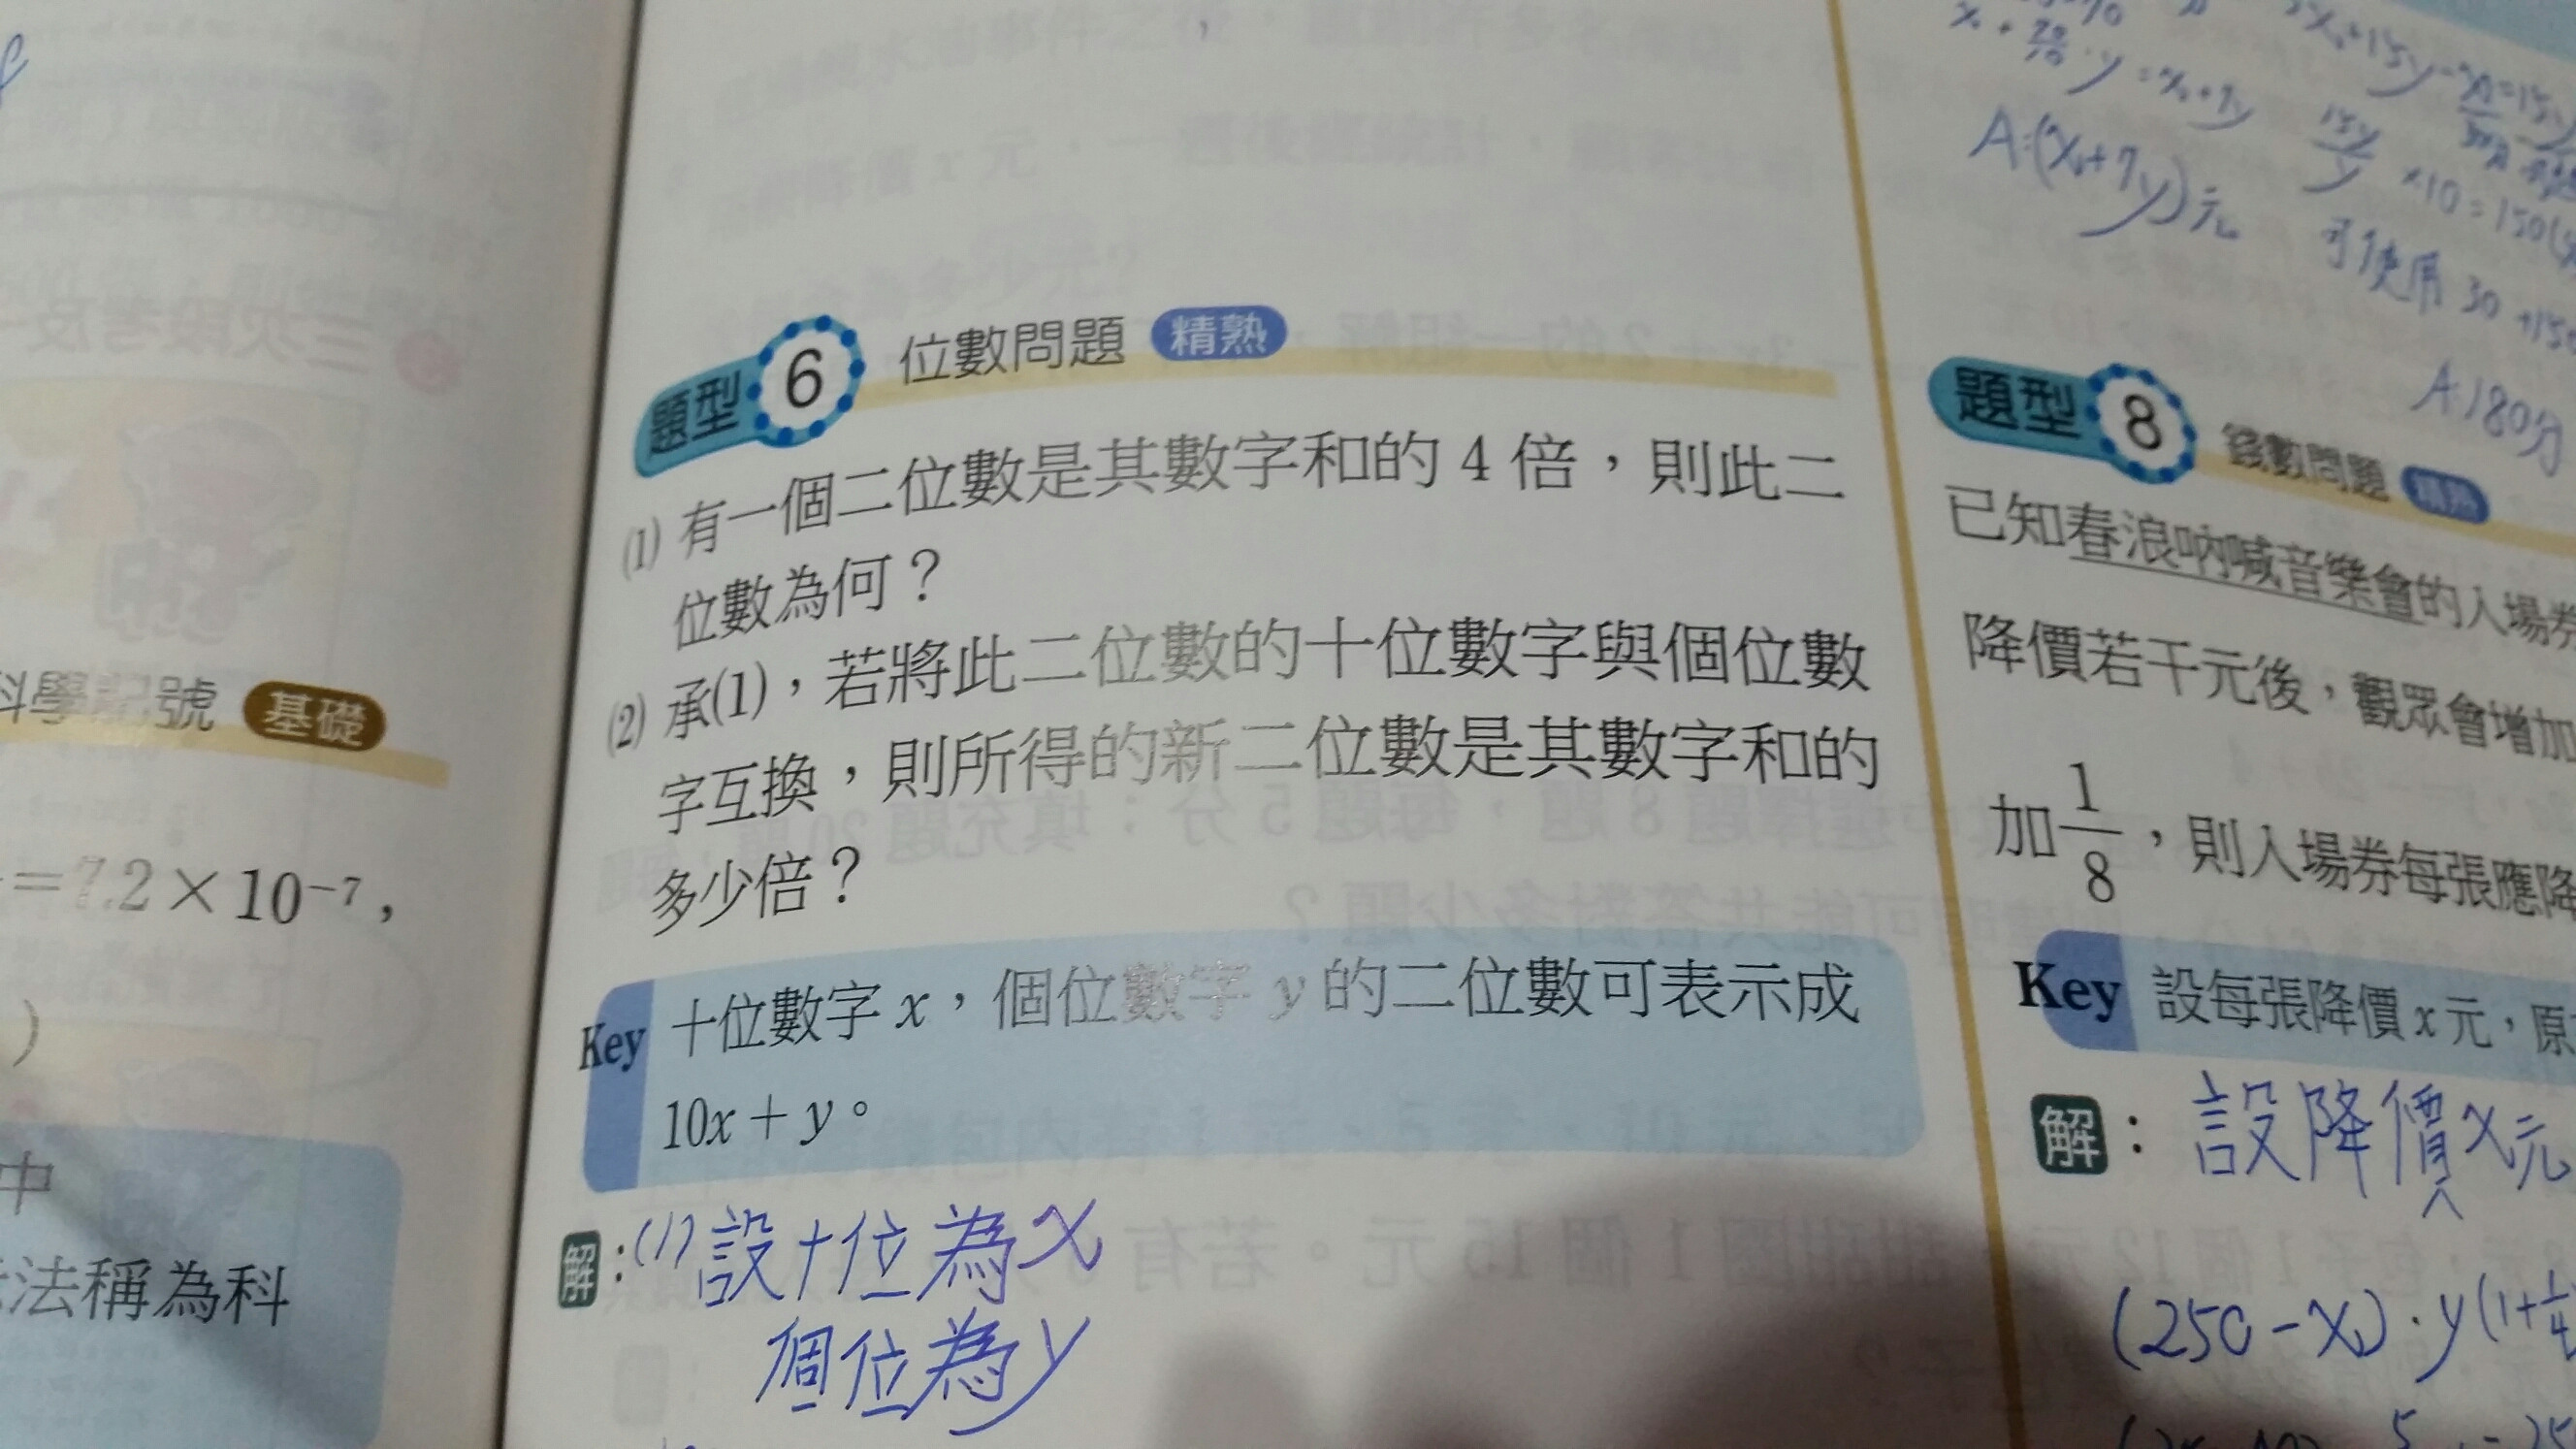 題型 6 位數問題 精熟
(1) 有一個二位數是其數字和的 4 倍，則此二
位數為何？
(2) 承(1)，若將此二位數的十位數字與個位數
字互換，則所得的新二位數是其數字和的
多少倍？
Key 十位數字 x，個位數字 y 的二位數可表示成
10x + y。
解：(1) 設十位為x
個位為y
科學記號 基礎
=7.2×10⁻⁷，
)
中
法稱為科
A:(x+7y)元
可使用 30 +150
A:180分
題型 8 錢數問題 精熟
已知春浪吶喊音樂會的入場券
降價若干元後，觀眾會增加
加 1/8，則入場券每張應降
Key 設每張降價 x 元，原
解： 設降價x元
(250-x)·y(1+1/4